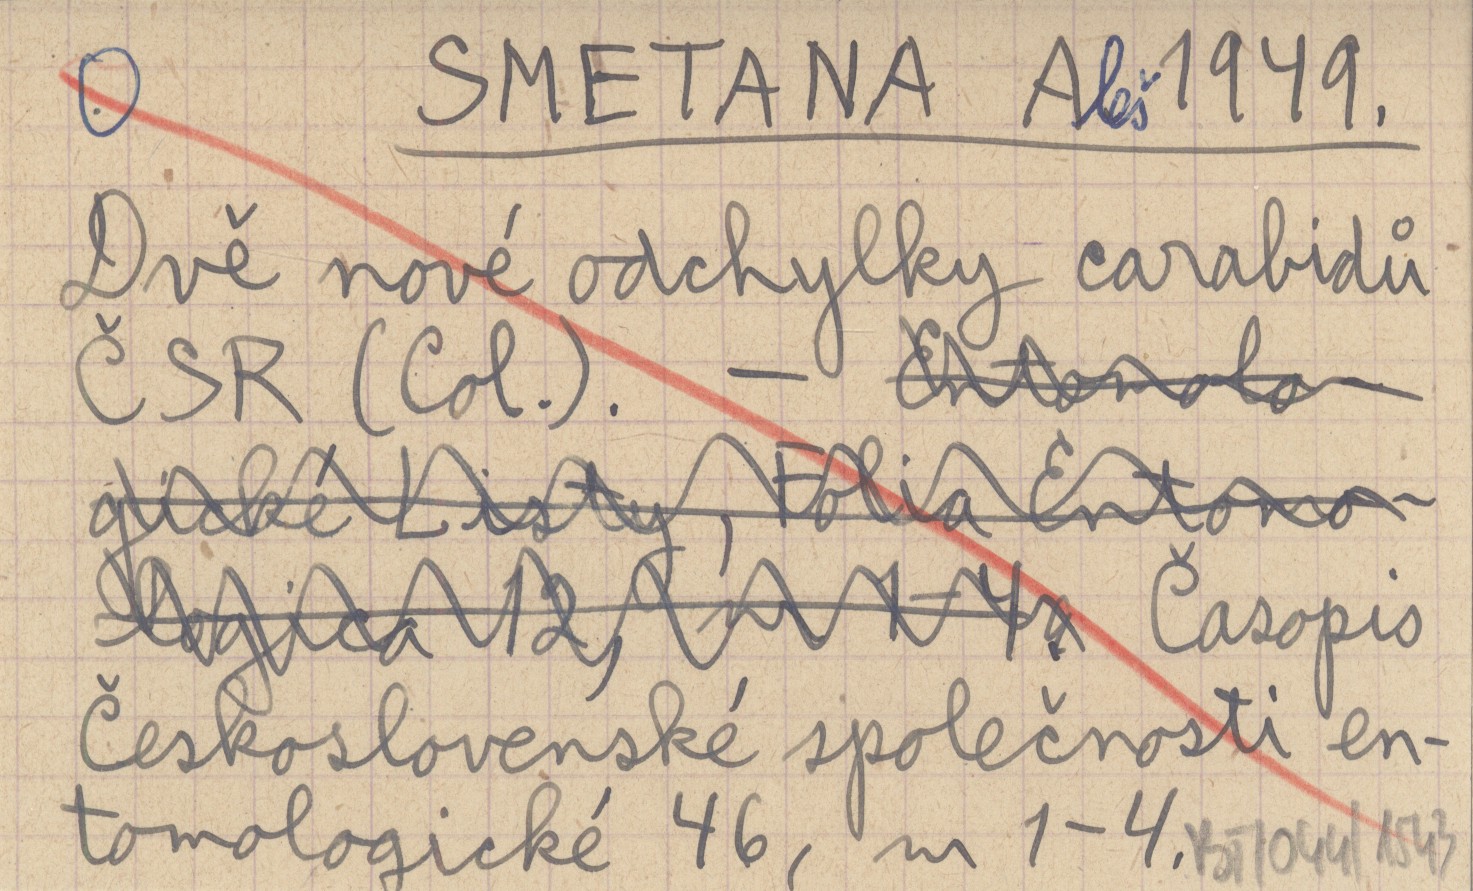 SMETANA Aleš 1949.
Dvě nové odchylky carabidů
ČSR (Col.). — Entomolo-
gické Listy, Folia Entomo-
logica 12, 1-4. Časopis
Československé společnosti en-
tomologické 46, 1-4.